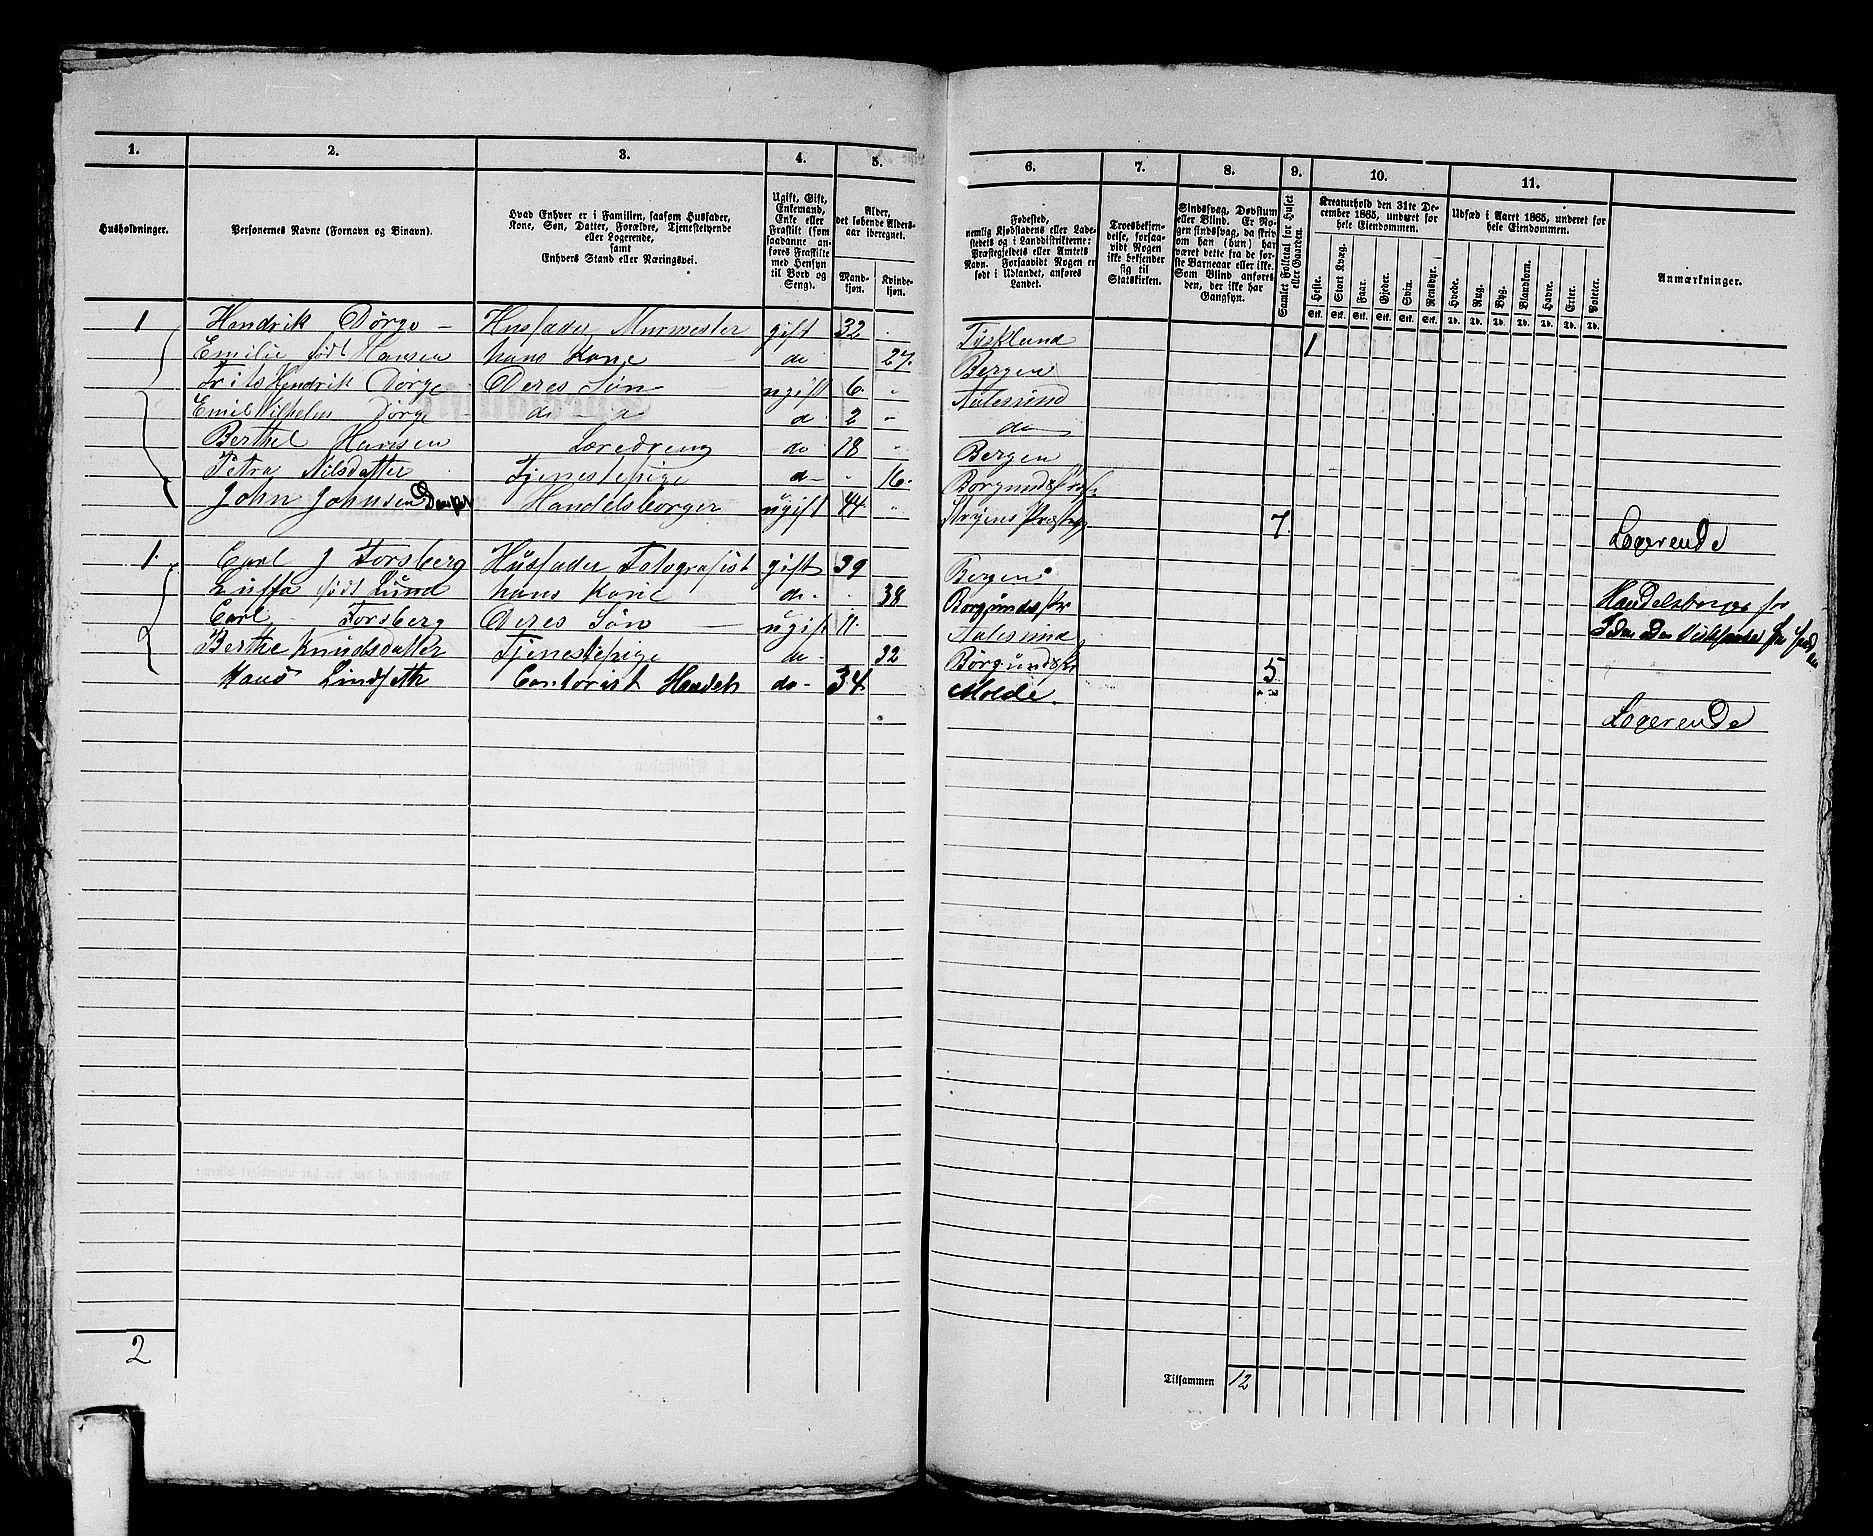 1. 2. 3. 4. 5. 6. 7. 8. 9. 10. 11.
Husholdninger.
Personernes Navne (Fornavn og Binavn).
Hvad Enhver er i Familien, saasom Husfader,
Kone, Søn, Datter, Forældre, Tjenestetyende
eller Logerende,
samt
Enhvers Stand eller Næringsvei.
Ugift, Gift,
Enkemand,
Enke eller
Fraskilt (som
saadanne an-
føres Fraskilte
med Hensyn
til Bord og
Seng).
Alder,
det løbende Alders-
aar iberegnet.
Mand-
kjøn.
Kvinde-
kjøn.
Fødested,
nemlig Kjøbstadens eller Lade-
stedets og i Landdistrikterne:
Præstegjeldets eller Amtets
Navn. Forsaavidt Nogen er
født i Udlandet, anføres
Landet.
Troesbekjen-
delse, forsaa-
vidt Nogen
ikke bekjender
sig til
Statskirken.
Sindssvag, Døvstum
eller Blind. Er No-
gen sindssvag, da skriv
om han (hun) har
været dette fra de før-
ste Barneaar eller ikke.
Som Blind anføres
den, der ikke har
Gangsyn.
Samlet Folketal for Huset
eller Gaarden.
Kreaturhold den 31te De-
cember 1865, underet for
hele Eiendommen.
Heste. Stort Kvæg. Faar. Gjeder. Svin. Rensdyr.
Stk. Stk. Stk. Stk. Stk. Stk.
Udsæd i Aaret 1865, underet for
hele Eiendommen.
Hvede. Rug. Byg. Blandkorn. Havre. Erter. Poteter.
Td. Td. Td. Td. Td. Td. Td.
Anmærkninger.
1 Hendrik Dørge – Husfader Murmester gift 32 Tyskland 1
Emilie født Hansen hans Kone do 27. Bergen
Frits Hendrik Dørge Deres Søn ugift 6 Aalesund
Emil Vilhelm Dørge d 2 do
Berthel Hansen Læredreng do 18 Bergen
Petra Nilsdatter Tjenestepige d– 16.
John Johnsen Handelsborger ugift 44 7. Logerende
1. Carl J Forsberg Husfader Fotografist gift 39 Bergen
født Lund hans Kone do– 38 Handelsborger for
Carl Forsberg Deres Søn ugift 11. Aalesund
Berthe Knudsdatter Tjenestepige do– 32 5
Hans Lindseth Contorist do– 34 Molde. Logerende
2
Tilsammen 12